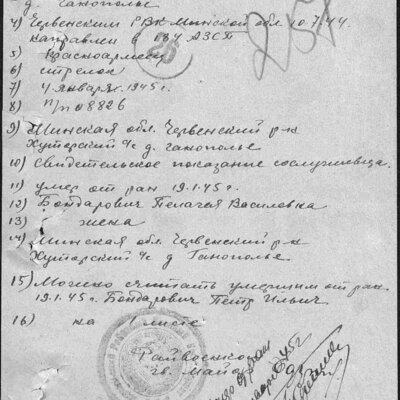 д. Ганополье
4) Червенским РВК Минской обл. 10.7.44.
направлен в 
5) Красноармеец
6) стрелок
7) 4 января 1945 г.
8) п/п 08826
9) Минская обл. Червенский р-н
Хуторский с/с д. Ганополье
10) Свидетельское показание сослуживца.
11) умер от ран 19.1.45 г.
12) Бондарович Пелагея Василевна
13) жена
14) Минская обл. Червенский р-н
Хуторский с/с д. Ганополье
15) Можно считать умершим от ран
19.1.45 г. Бондарович Петр Ильич
16) на 1 листе
Райвоенком
гв. майор